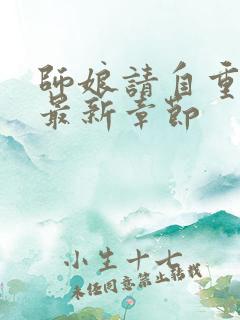 師娘請自重
最新章節
小生十七
未經同意禁止轉載